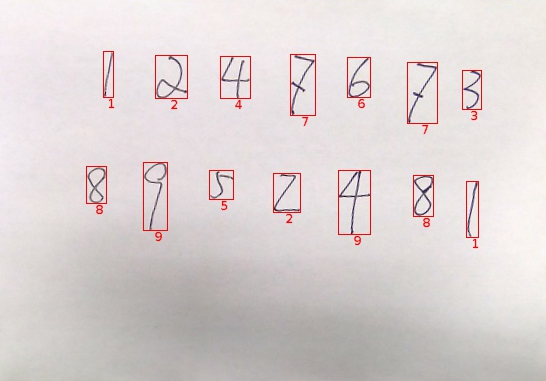 1 2 4 7 6 7 3
1 2 4 7 6 7 3
8 9 5 2 4 8 1
8 9 5 2 9 8 1